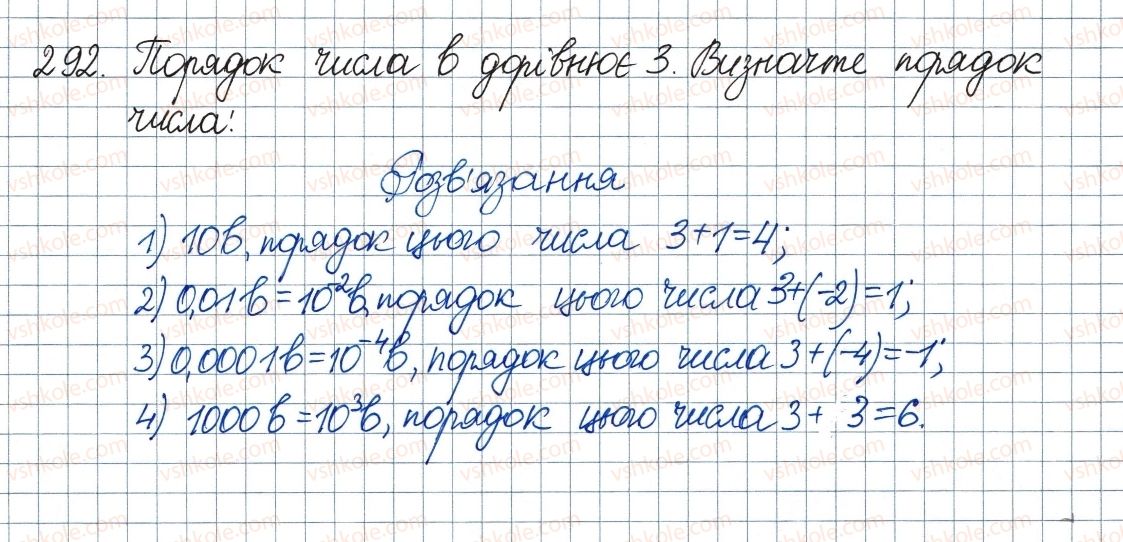 292. Порядок числа в дорівнює 3. Визначте порядок
числа:
Розв'язання
1) 10в, порядок цього числа 3+1=4;
2) 0,01в=10⁻²в, порядок цього числа 3+(-2)=1;
3) 0,0001в=10⁻⁴в, порядок цього числа 3+(-4)=-1;
4) 1000в=10³в, порядок цього числа 3+ 3=6.